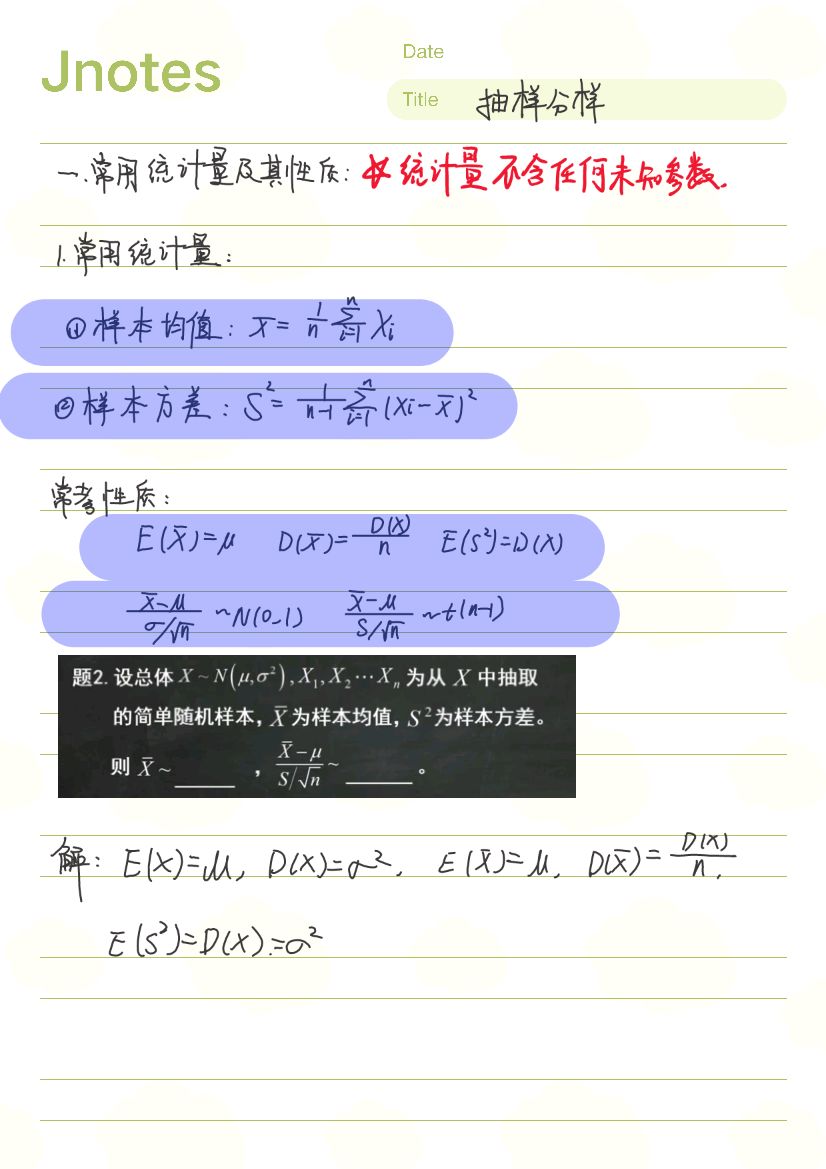 Jnotes
Date
Title 抽样分样
一.常用统计量及其性质: 统计量不含任何未知参数.
1.常用统计量:
① 样本均值: X̄ = 1/n ∑_{i=1}^{n} Xi
② 样本方差: S² = 1/(n-1) ∑_{i=1}^{n} (Xi - X̄)²
常考性质:
E(X̄)=μ D(X̄)=D(X)/n E(S²)=D(X)
(X̄-μ)/(σ/√n) ~N(0-1) (X̄-μ)/(S/√n) ~t(n-1)
题2. 设总体 X ~ N(μ,σ²), X₁, X₂ ⋯ Xₙ 为从 X 中抽取
的简单随机样本, X̄ 为样本均值, S² 为样本方差。
则 X̄ ~ ______ , (X̄-μ)/(S/√n) ~ ______ 。
解: E(X)=μ, D(X)=σ², E(X̄)=μ, D(X̄)=D(X)/n.
E(S²)=D(X).=σ²